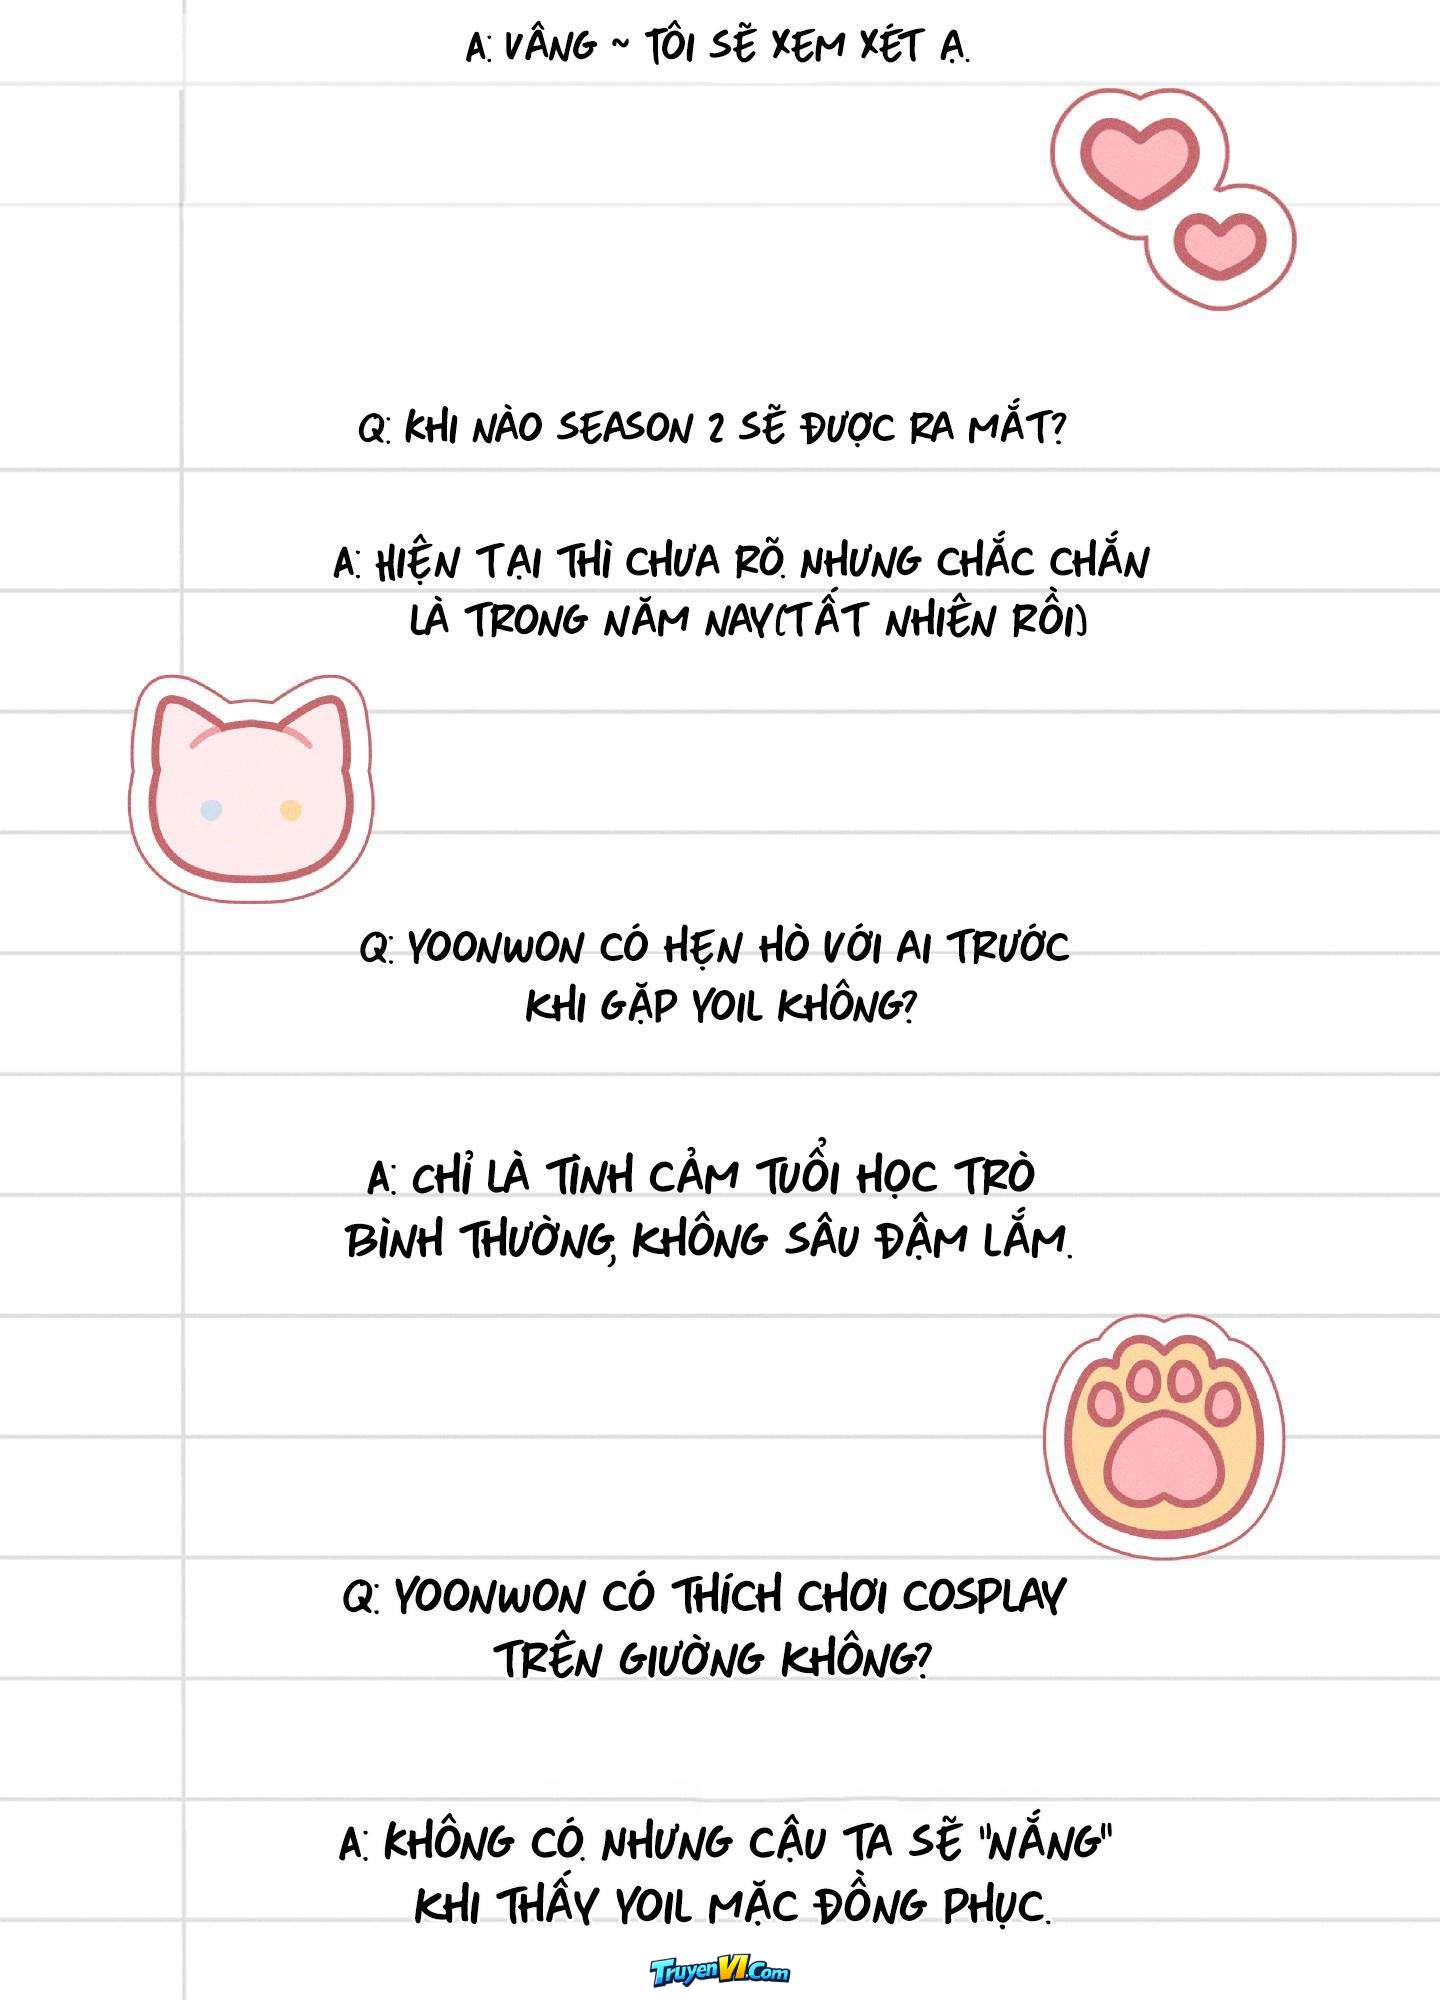 A: VÂNG ~ TÔI SẼ XEM XÉT Ạ.
Q: KHI NÀO SEASON 2 SẼ ĐƯỢC RA MẮT?
A: HIỆN TẠI THÌ CHƯA RÕ. NHƯNG CHẮC CHẮN
LÀ TRONG NĂM NAY(TẤT NHIÊN RỒI)
Q: YOONWON CÓ HẸN HÒ VỚI AI TRƯỚC
KHI GẶP YOIL KHÔNG?
A: CHỈ LÀ TÌNH CẢM TUỔI HỌC TRÒ
BÌNH THƯỜNG, KHÔNG SÂU ĐẬM LẮM.
Q: YOONWON CÓ THÍCH CHƠI COSPLAY
TRÊN GIƯỜNG KHÔNG?
A: KHÔNG CÓ. NHƯNG CẬU TA SẼ "NẮNG"
KHI THẤY YOIL MẶC ĐỒNG PHỤC.
TruyenVI.Com